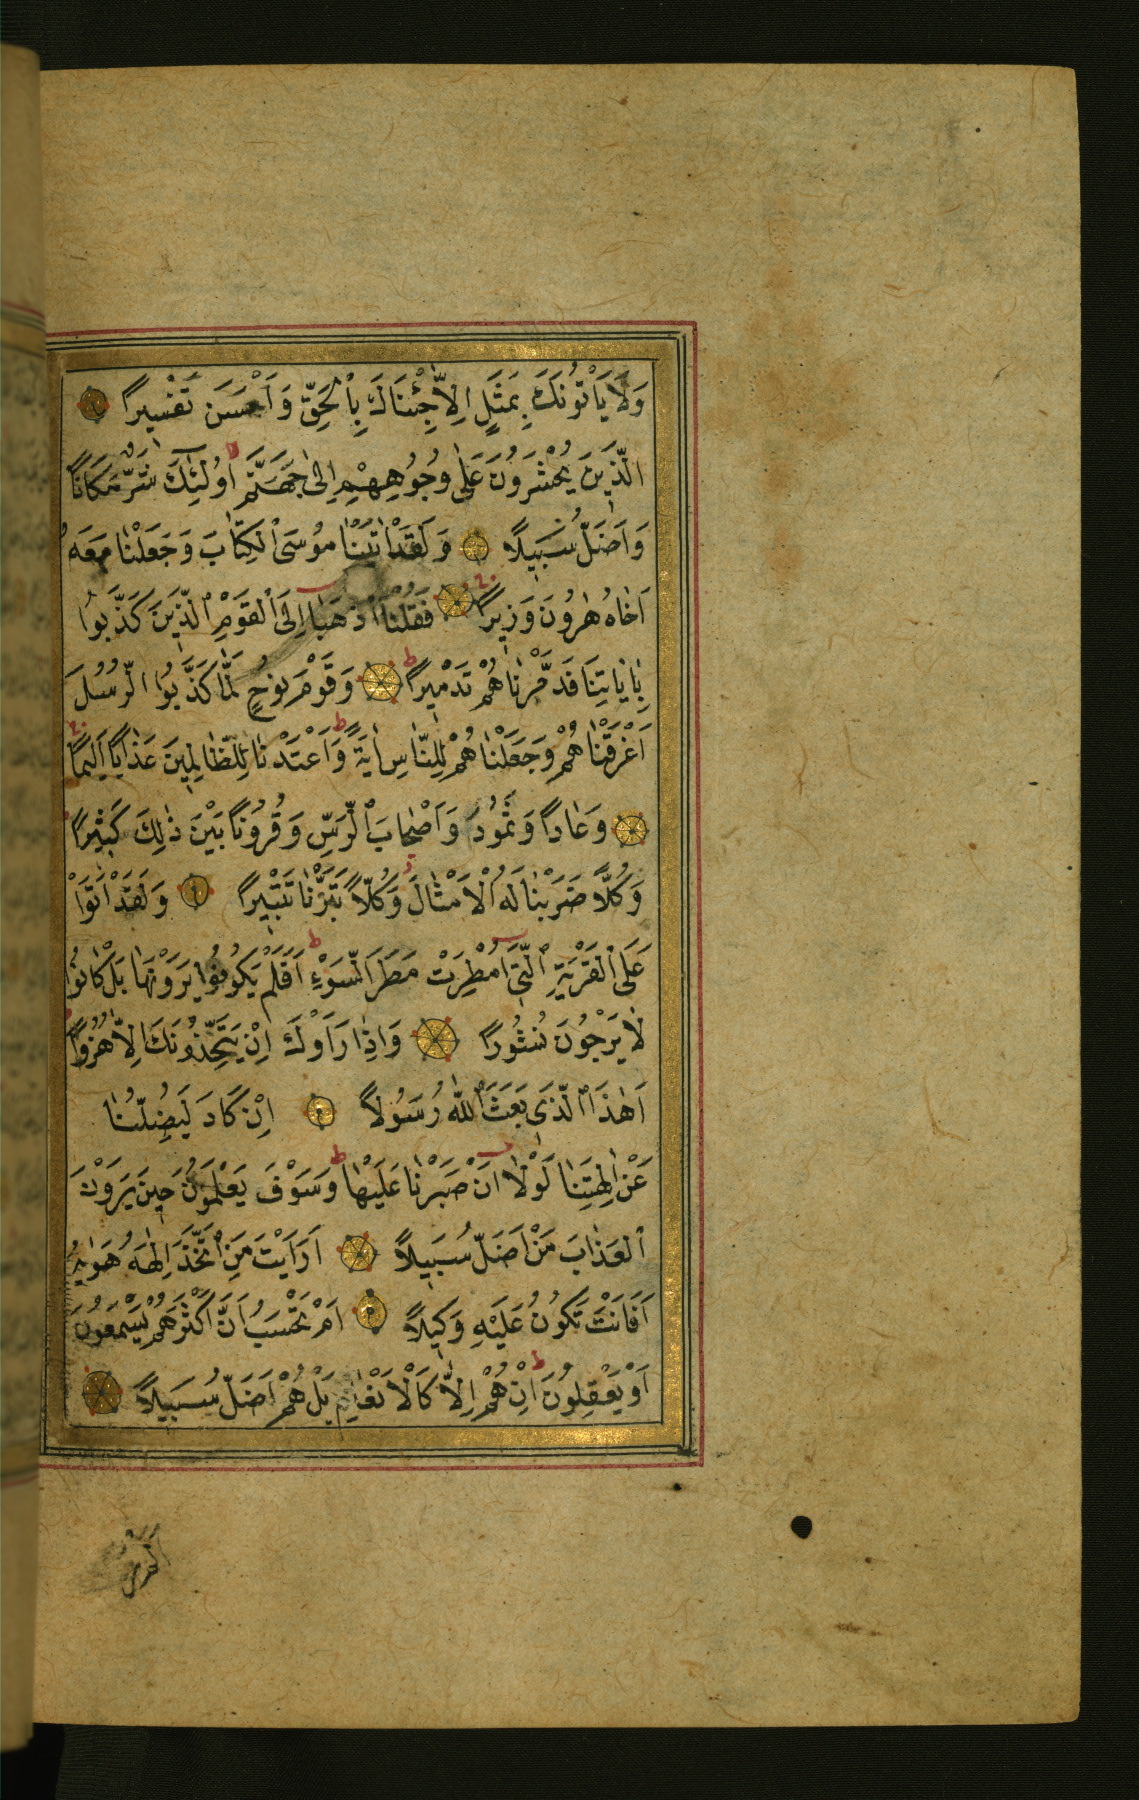 وَلَا يَأْتُونَكَ بِمَثَلٍ اِلَّا جِئْنَاكَ بِالْحَقِّ وَ اَحْسَنَ تَفْسِيرًا
الَّذِينَ يُحْشَرُونَ عَلٰى وُجُوهِهِمْ اِلٰى جَهَنَّمَ اُولٰئِكَ شَرٌّ مَكَانًا
وَ اَضَلُّ سَبِيلًا وَ لَقَدْ اٰتَيْنَا مُوسَى الْكِتَابَ وَ جَعَلْنَا مَعَهُ
اَخَاهُ هٰرُونَ وَزِيرًا فَقُلْنَا اذْهَبَا اِلَى الْقَوْمِ الَّذِينَ كَذَّبُوا
بِاٰيَاتِنَا فَدَمَّرْنَاهُمْ تَدْمِيرًا وَ قَوْمَ نُوحٍ لَمَّا كَذَّبُوا الرُّسُلَ
اَغْرَقْنَاهُمْ وَ جَعَلْنَاهُمْ لِلنَّاسِ اٰيَةً وَ اَعْتَدْنَا لِلظَّالِمِينَ عَذَابًا اَلِيمًا
وَ عَادًا وَ ثَمُودَ وَ اَصْحَابَ الرَّسِّ وَ قُرُونًا بَيْنَ ذٰلِكَ كَثِيرًا
وَ كُلًّا ضَرَبْنَا لَهُ الْاَمْثَالَ وَ كُلًّا تَبَّرْنَا تَتْبِيرًا وَ لَقَدْ اَتَوْا
عَلَى الْقَرْيَةِ الَّتِى اُمْطِرَتْ مَطَرَ السَّوْءِ اَفَلَمْ يَكُونُوا يَرَوْنَهَا بَلْ كَانُوا
لَا يَرْجُونَ نُشُورًا وَ اِذَا رَاَوْكَ اِنْ يَتَّخِذُونَكَ اِلَّا هُزُوًا
اَهٰذَا الَّذِى بَعَثَ اللّٰهُ رَسُولًا اِنْ كَادَ لَيُضِلُّنَا
عَنْ اٰلِهَتِنَا لَوْلَا اَنْ صَبَرْنَا عَلَيْهَا وَ سَوْفَ يَعْلَمُونَ حِينَ يَرَوْنَ
الْعَذَابَ مَنْ اَضَلُّ سَبِيلًا اَرَاَيْتَ مَنِ اتَّخَذَ اِلٰهَهُ هَوٰيهُ
اَفَاَنْتَ تَكُونُ عَلَيْهِ وَكِيلًا اَمْ تَحْسَبُ اَنَّ اَكْثَرَهُمْ يَسْمَعُونَ
اَوْ يَعْقِلُونَ اِنْ هُمْ اِلَّا كَالْاَنْعَامِ بَلْ هُمْ اَضَلُّ سَبِيلًا